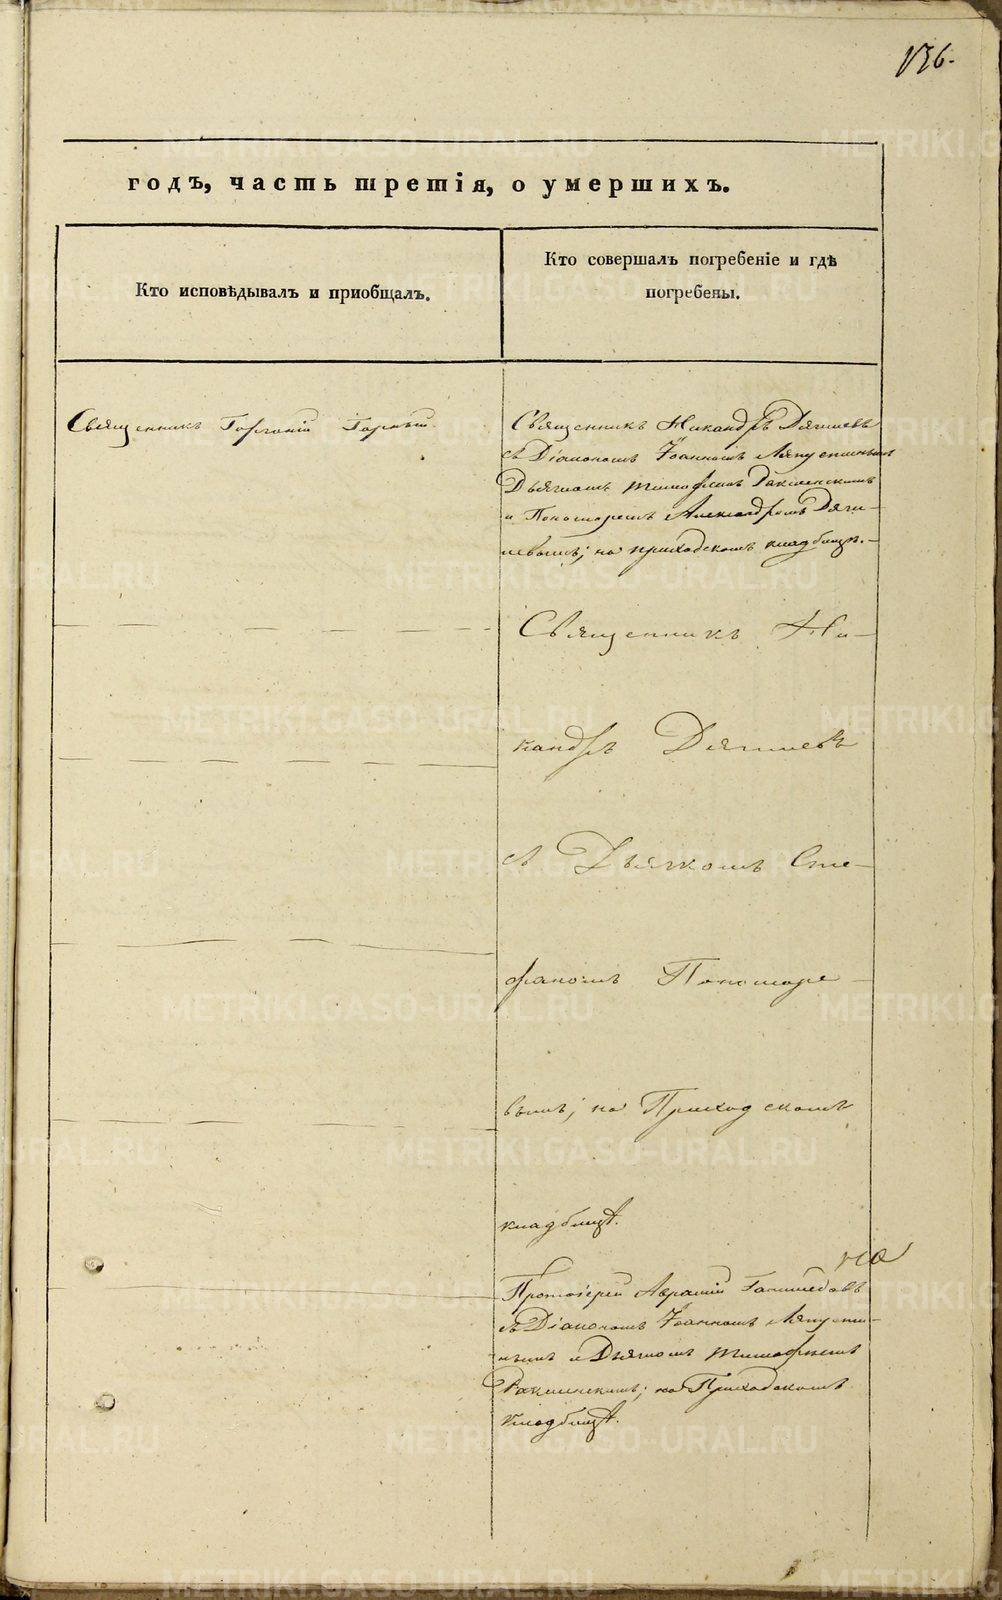 136.
годъ, часть третія, о умершихъ.
Кто исповѣдывалъ и приобщалъ.
Кто совершалъ погребеніе и гдѣ
погребены.
Священникъ Горгоній
Священникъ Никандръ Дягилевъ
съ Діакономъ Іоанномъ Ляпустинымъ
Дьячкомъ Тимофеемъ
и Пономаремъ Александромъ Дяги-
левымъ; на приходскомъ кладбищѣ.-
Священникъ Ни-
кандръ Дягилевъ
съ Дьячкомъ Сте-
фаномъ Пономаре-
вымъ; на Приходскомъ
кладбищѣ.
Протоіерей Аврамій
съ Діакономъ Іоанномъ Ляпусти-
нымъ и Дьячкомъ Тимофеемъ
на Приходскомъ
кладбищѣ.
METRIKI.GASO-URAL.RU